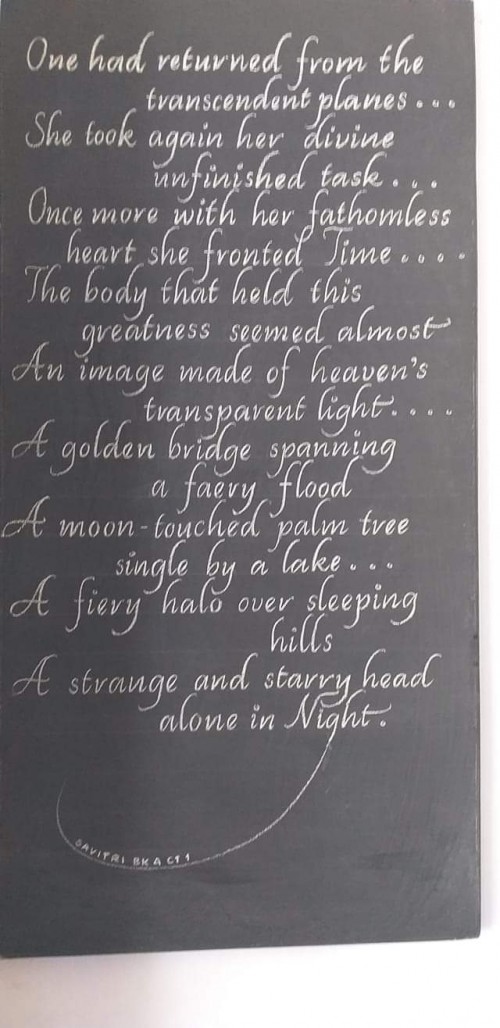 One had returned from the
transcendent planes...
She took again her divine
unfinished task....
Once more with her fathomless
heart she fronted Time....
The body that held this
greatness seemed almost
An image made of heaven's
transparent light....
A golden bridge spanning
a faery flood
A moon-touched palm tree
single by a lake...
A fiery halo over sleeping
hills
A strange and starry head
alone in Night.
SAVITRI BK A CT 1